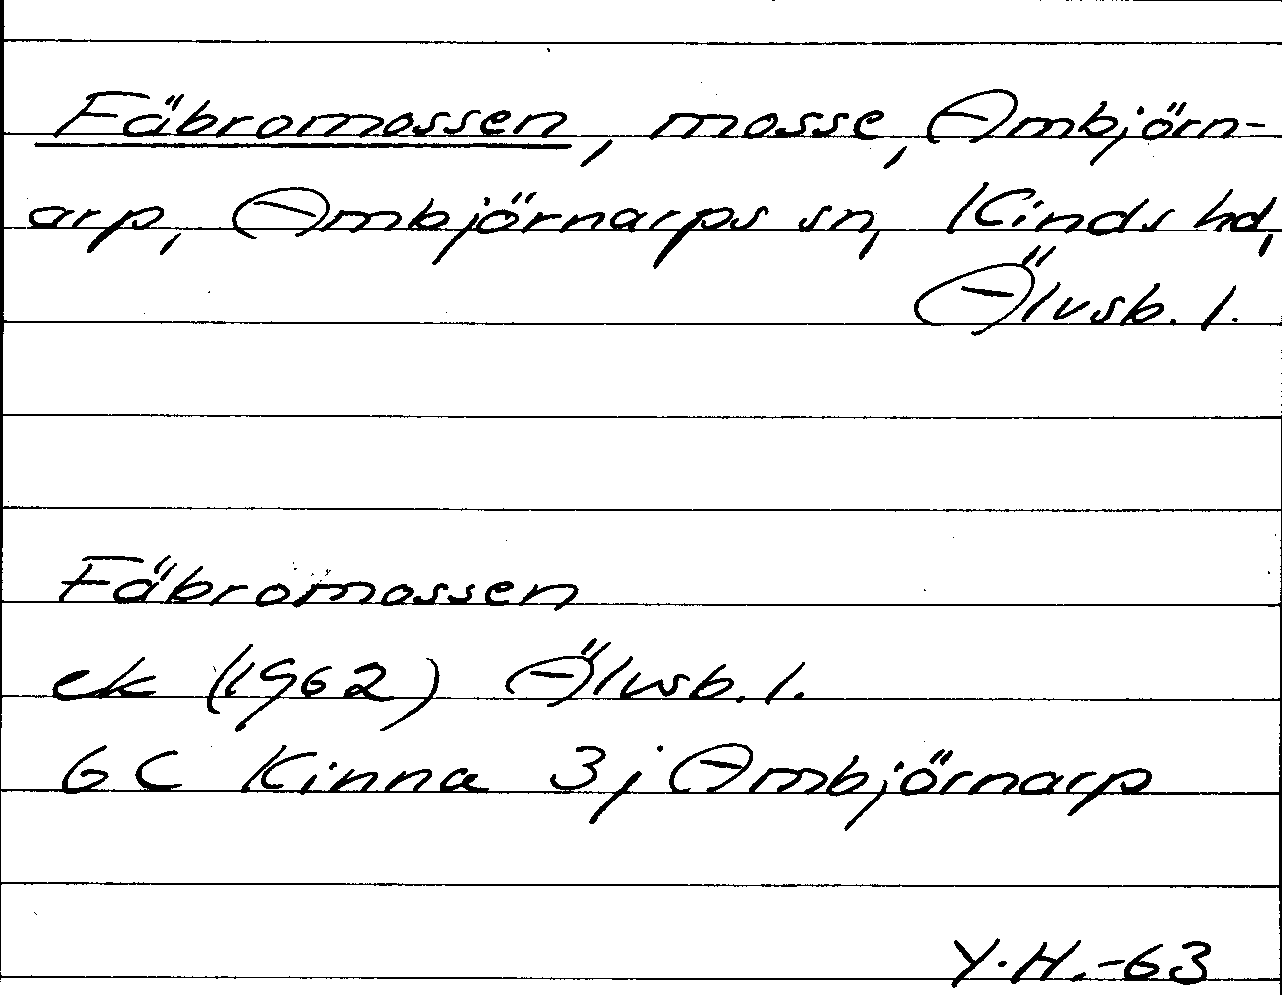 Fäbromossen, mosse, Ambjörn-
arp, Ambjörnarps sn, Kinds hd,
Älvsb. l.
Fäbromossen
ek (1962) Älvsb. l.
6 C Kinna 3 j Ambjörnarp
Y.H.-63